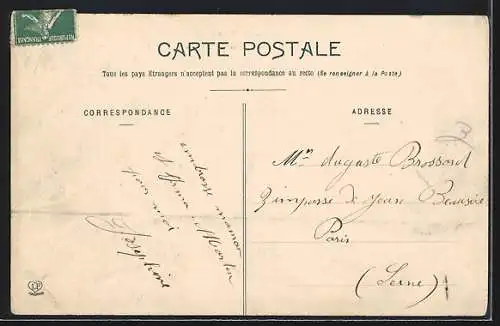 CARTE POSTALE
Tous les pays Etrangers n'acceptent pas la correspondance au recto (Se renseigner à la Poste)
CORRESPONDANCE
embrasse maman
et Irma, Marton
pour moi
Joséphine
ADRESSE
Mr Auguste Brossard
2 impasse de Jean Beausire
Paris
(Seine)